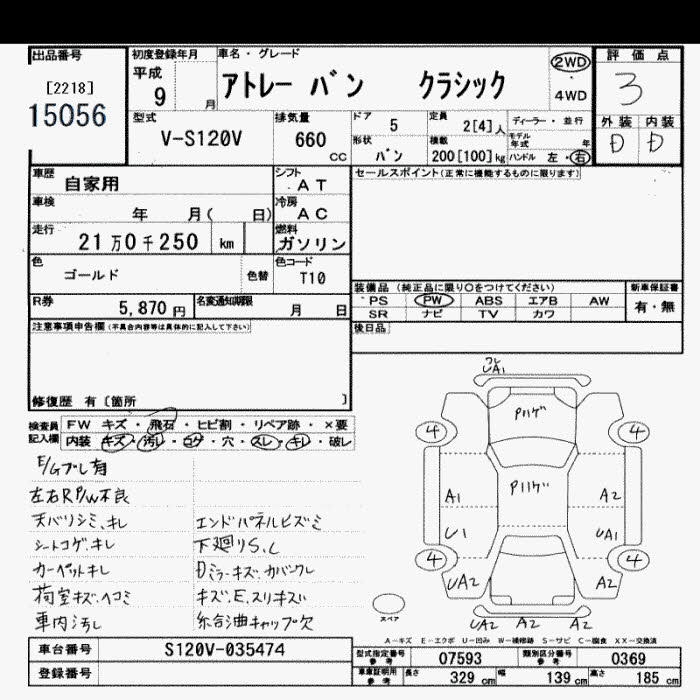 出品番号
[2218]
15056
初度登録年月
平成
9 月
車名・グレード
アトレー バン クラシック
2WD
4WD
評価点
3
外装 内装
D D
型式
V-S120V
排気量
660
CC
ドア
5
形状
バン
定員
2[4]人
積載
200[100]kg
ディーラー・並行
モデル年式 年
ハンドル 左・右
車歴
自家用
シフト
AT
車検
年 月( 日)
冷房
AC
走行
21万0千250 km
燃料
ガソリン
色
ゴールド
色替
色コード
T10
R券
5,870円
名変通知期限
月 日
セールスポイント(正常に機能するものに限ります)
装備品 (純正品に限り○をつけてください)
PS PW ABS エアB AW
SR ナビ TV カワ
新車保証書
有・無
後日品
注意事項申告欄(不具合内容等は具体的に記入して下さい)
修復歴 有〔箇所 〕
検査員
記入欄
FW キズ・飛石・ヒビ割・リペア跡・×要
内装 キズ・汚レ・コゲ・穴・スレ・キレ・破レ
E/Gブレ有
左右RP/W不良
天バリシミ、キレ
シートコゲ、キレ
カーペットキレ
荷室キズ、ヘコミ
車内汚し
エンドパネルヒズミ
下廻りS、C
Dミラーキズ、カバーワレ
キズ、E、スリキズい
給油キャップ欠
コレ
UA1
Pハゲ
4 4
Pハゲ
A1 A2
U1 UA1
4 4
UA2 A2
UA2 A2 A2
スペア
A-キズ E-エクボ U-凹み W-補修跡 S-サビ C-腐食 XX-交換済
車台番号
S120V-035474
登録番号
型式指定番号
参考
07593
類別区分番号
参考
0369
車庫証明用
参考
長さ 329 cm
幅 139 cm
高さ 185 cm